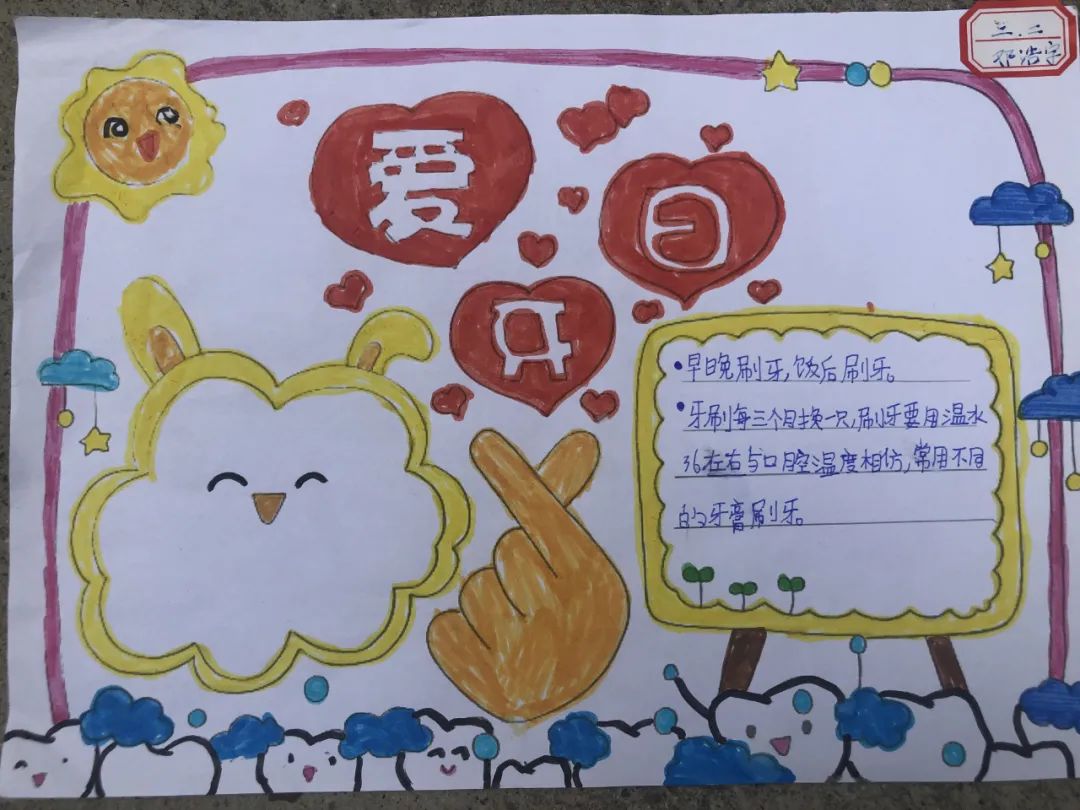 三.二
邓浩宇
爱
牙
日
•早晚刷牙,饭后刷牙。
•牙刷每三个月换一只,刷牙要用温水
36左右与口腔温度相仿,常用不同
的牙膏刷牙。